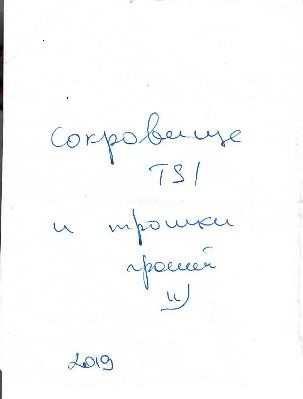 сокровище
TSI
и трошки
грошей
=)
2019